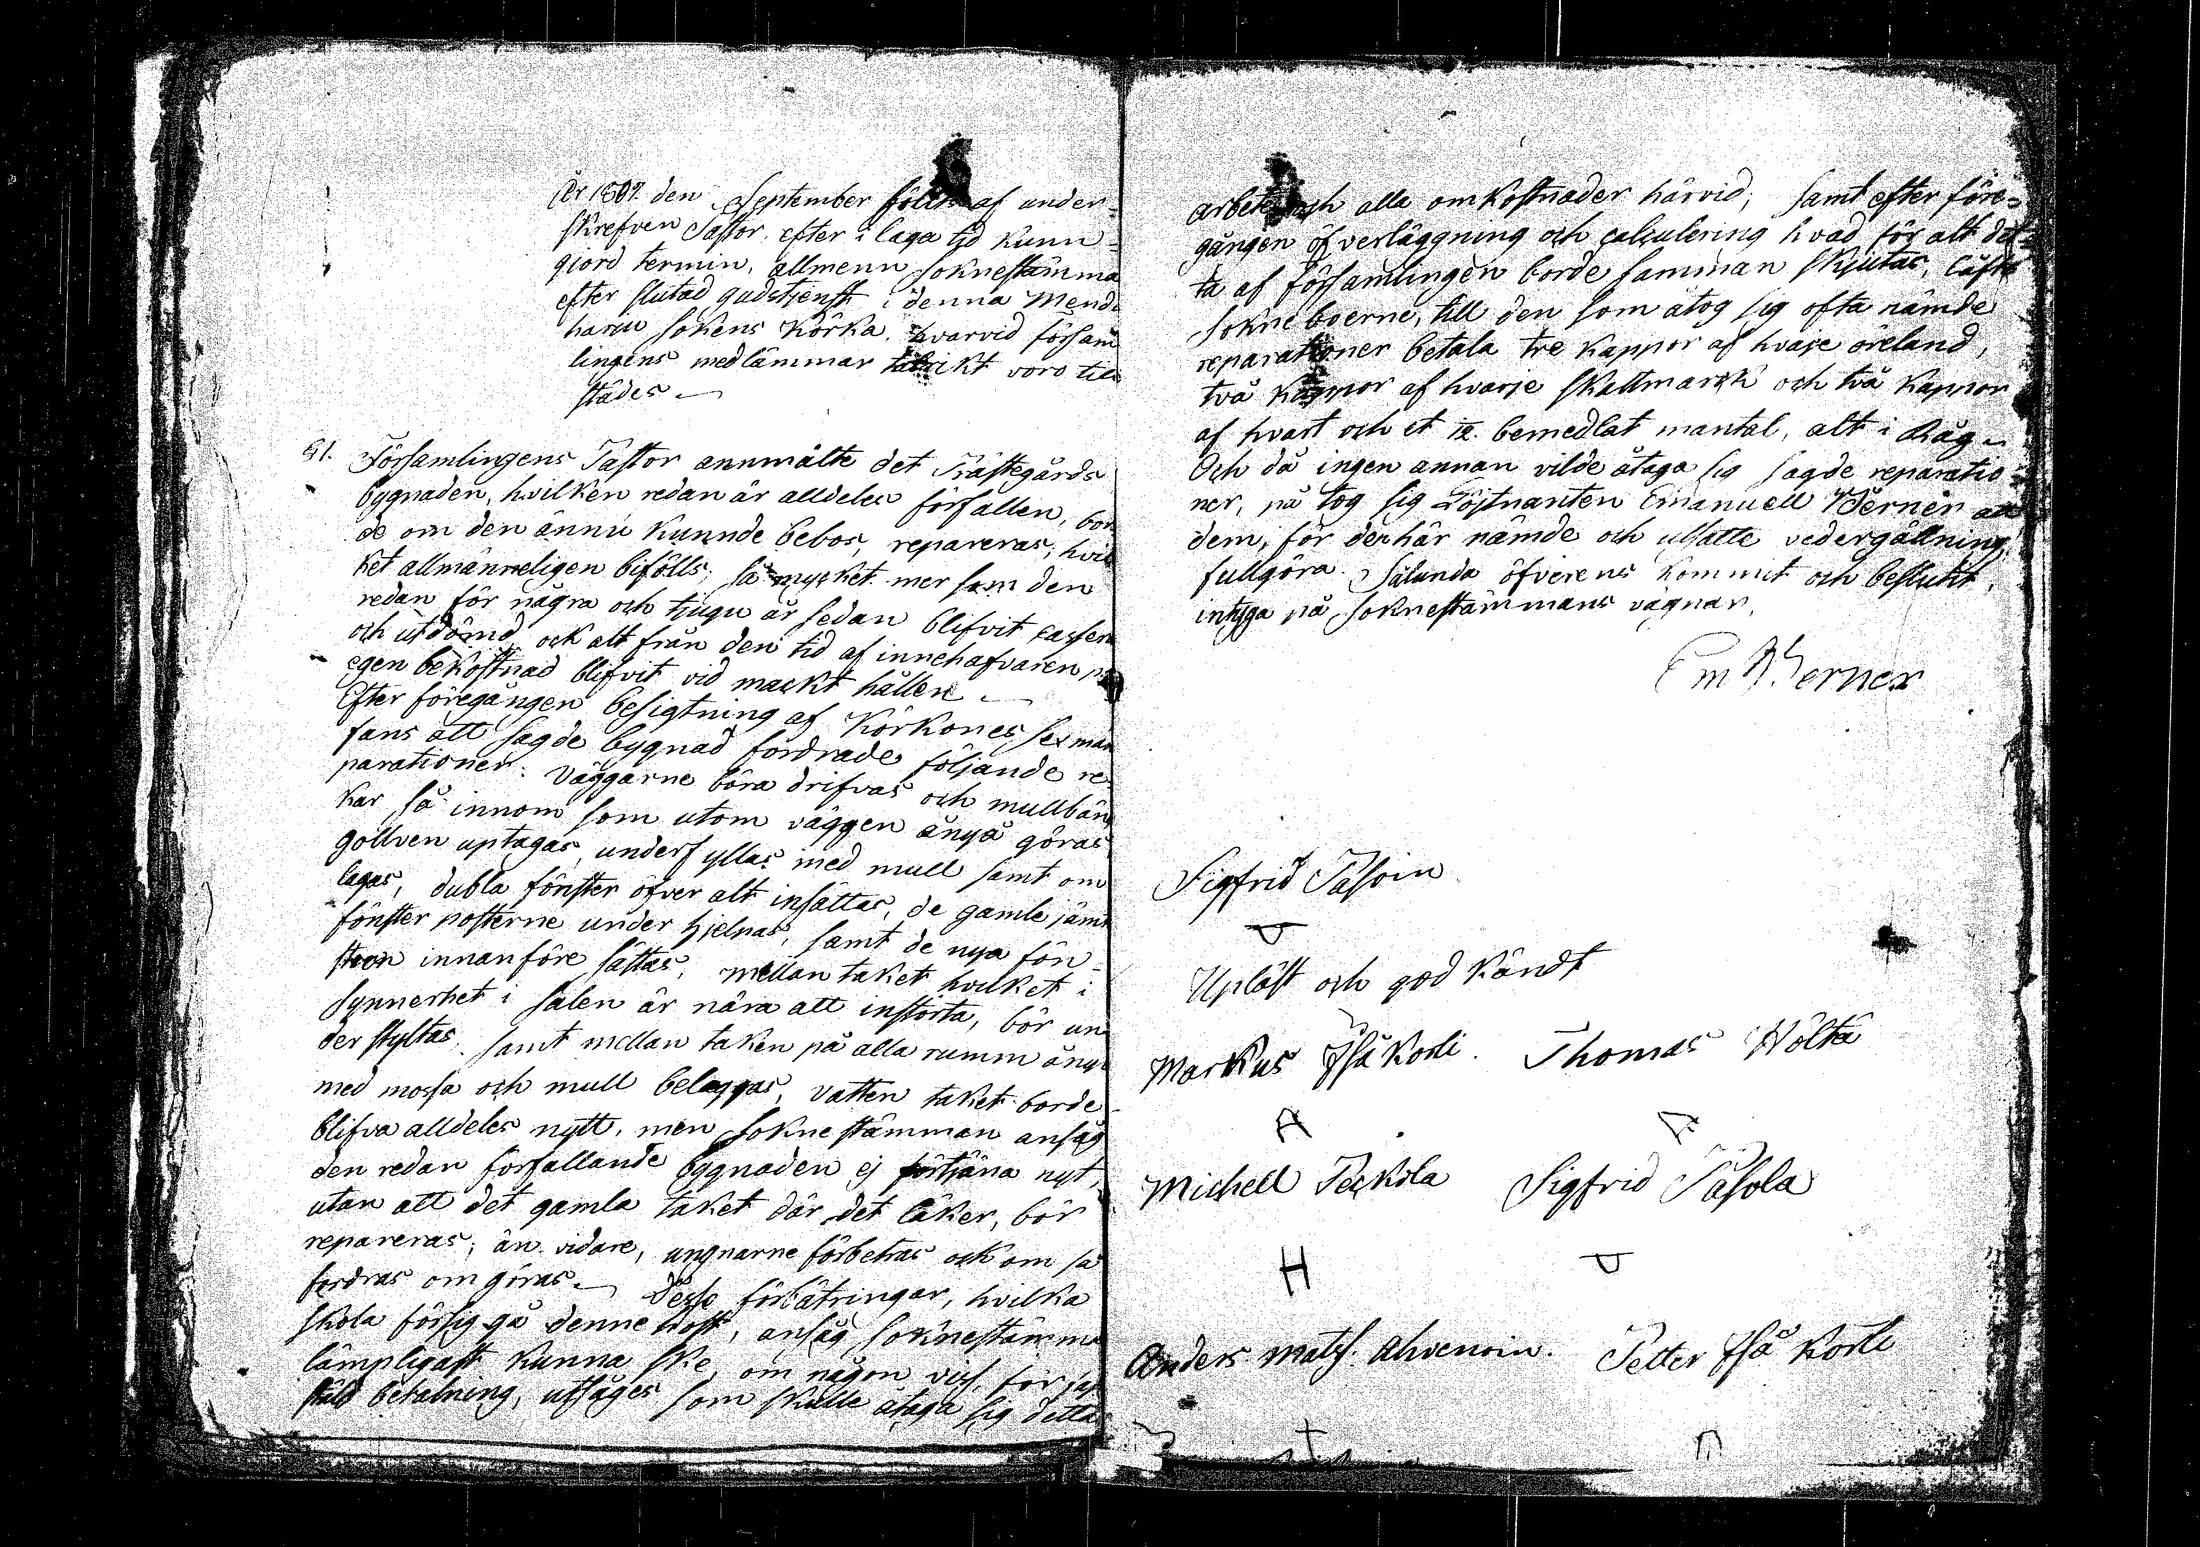 År 1807. den September hölts af under-
skrefven Pastor, efter i laga tid kunn-
giord termin, allmenn soknestämma
efter slutad gudstjenst i denna Mend
harju sokens körka, hvarvid försam
lingens medlämmar talrikt voro till
städes.
§1. Församlingens Pastor annmälte det Prästegårds
bygnaden, hvilken redan är alldeles förfallen, bor
de om den ännu kunnde bebos, repareras; hvil
ket allmänneligen bifölls; så mycket mer som den
redan för några och tjugu år sedan blifvit casser
och utdömd, ock alt från den tid af innehafvaren på
egen bekostnad blifvit vid mackt hållen.
Efter föregången besigtning af körkones sexmän
fans att sagde bygnad fordrade följande re
parationer: väggarne böra drifvas och mullbän
kar, så innom som utom väggen ånyå göras,
gollven uptagas, underfyllas med mull samt om
lagas, dubla fönster öfver alt insättas, de gamle jämt
fönster posterne under hjelpas, samt de nya fön-
stren innanföre sättas, mellan taket hvilket i
synnerhet i salen är nära att instörta, bör un
der styltas, samt mellan taken på alla rumm ånyå
med mossa och mull beläggas, vatten taket borde
blifva alldeles nytt, men soknestämman ansåg
den redan förfallande bygnaden ej förtjäna nyt,
utan att det gamla taket där det läker, bör
repareras; än vidare, ungnarne förbetras ock om så
fordras om göras. Desse förbätringar, hvilka
skola försig gå denne höst, ansåg soknestämma
lämpligast kunna ske, om någon viss, for
stäld betalning, utsåges som skulle åtaga sig detta
arbete och alla omkostnader härvid; samt efter före-
gången öfverläggning och calculering hvad för alt det-
ta af församlingen borde samman skjutas, låfte
sokneboerne, till den som åtog sig ofta nämde
reparationer betala tre kappor af hvarje öreland,
två kappor af hvarje skattmark och två kappor
af hvart och et bemedlat mantal, alt i Råg.
Och då ingen annan vilde åtaga sig sagde reparatio-
ner, på tog sig Löjtnanten Emanuell Werner att
dem, för den här nämde och utsatte vedergällning,
fullgöra. Sålunda öfverens kommit och beslutit,
intyga på soknestämmans vägnar,
Em Werner
Sigfrid Päsoin
Upläst och god kändt
Markus Isä Kosti. Thomas Hölttä
Michell Peckola Sigfrid Päsola
H
Anders Mats. Ahvenoin. Petter Isä Kosti